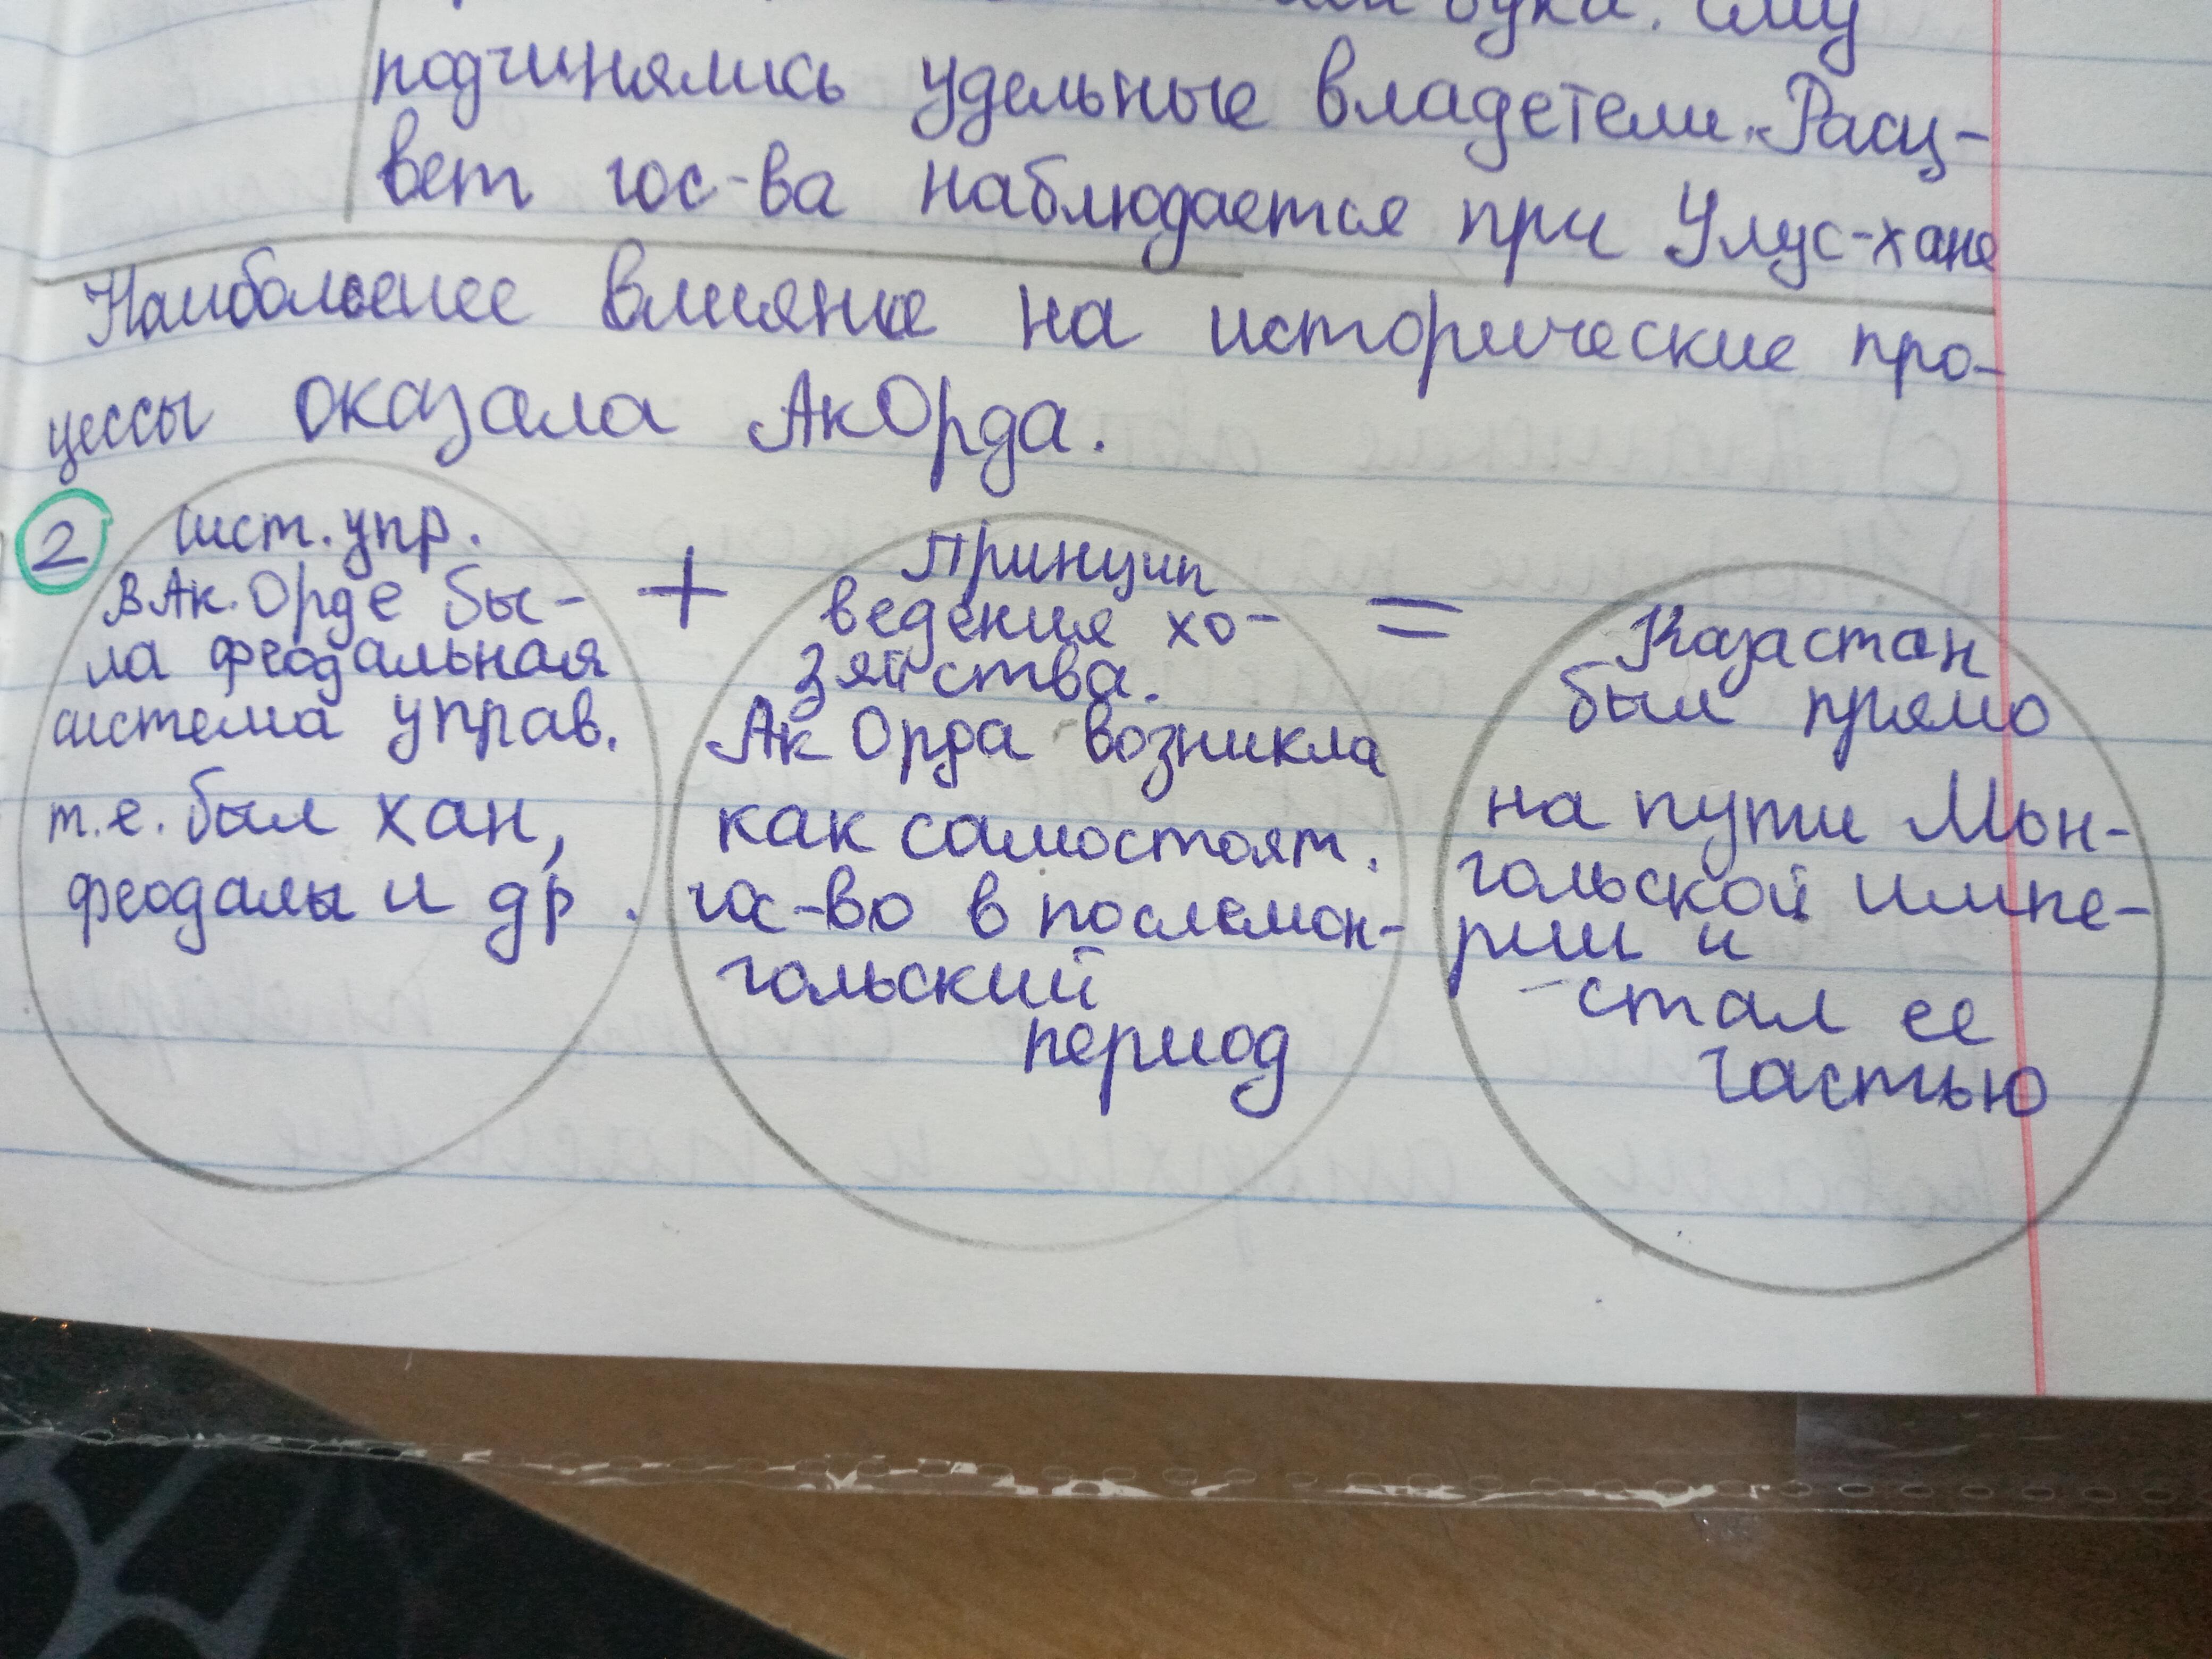 бука. Ему
подчинялись удельные владетели. Расц-
вет гос-ва наблюдается при Улус-хане
Наибольшее влияние на исторические про-
цессы оказала АкОрда.
2
сист. упр.
В Ак. Орде бы-
ла феодальная
система управ.
т.е. был хан,
феодалы и др.
+
Принцип
ведения хо-
зяйства.
Ак Орда возникла
как самостоят.
гос-во в послемон-
гольский
период
=
Казастан
был прямо
на пути Мон-
гольской импе-
рии и
стал ее
частью